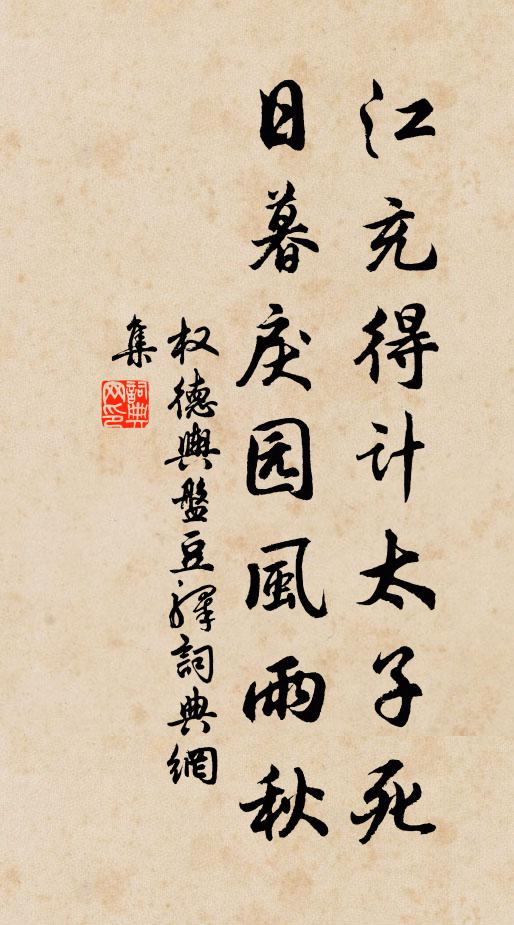 江充得计太子死
日暮戾园風雨秋
权德輿盤豆驛詞典網
集
詞典网印